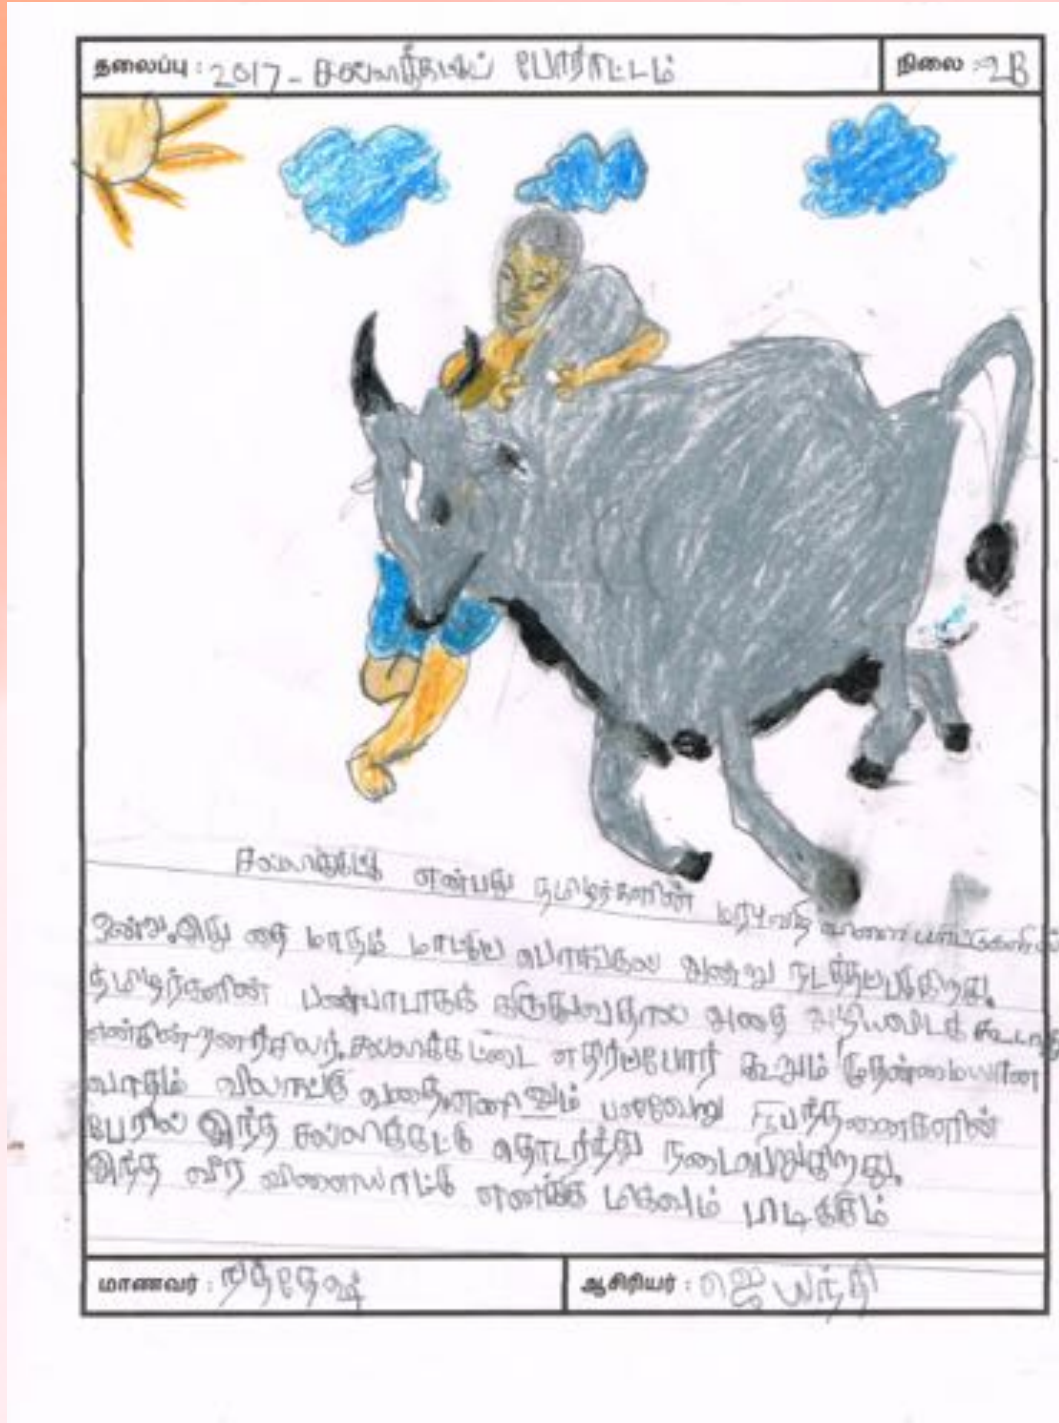 தலைப்பு : 2017 - சல்லிக்கட்டுப் போராட்டம்
நிலை : 2B
சல்லிக்கட்டு என்பது தமிழர்களின் மரபுவழி விளையாட்டுகளில்
ஒன்று. இது தை மாதம் மாட்டுப் பொங்கல் அன்று நடத்தப்படுகிறது.
தமிழர்களின் பண்பாடாகக் கருதுவதால் அதை அழியவிடக் கூடாது
என்கின்றனர் சிலர். சல்லிக்கட்டை எதிர்ப்போர் கூறும் முதன்மையான
வாதம் விலங்கு வதை. எனினும் பல்வேறு நிபந்தனைகளின்
பேரில் இந்த சல்லிக்கட்டு தொடர்ந்து நடைபெறுகிறது.
இந்த வீர விளையாட்டு எனக்கு மிகவும் பிடிக்கும்
மாணவர் : நித்தேஷ்
ஆசிரியர் : ஜெயந்தி